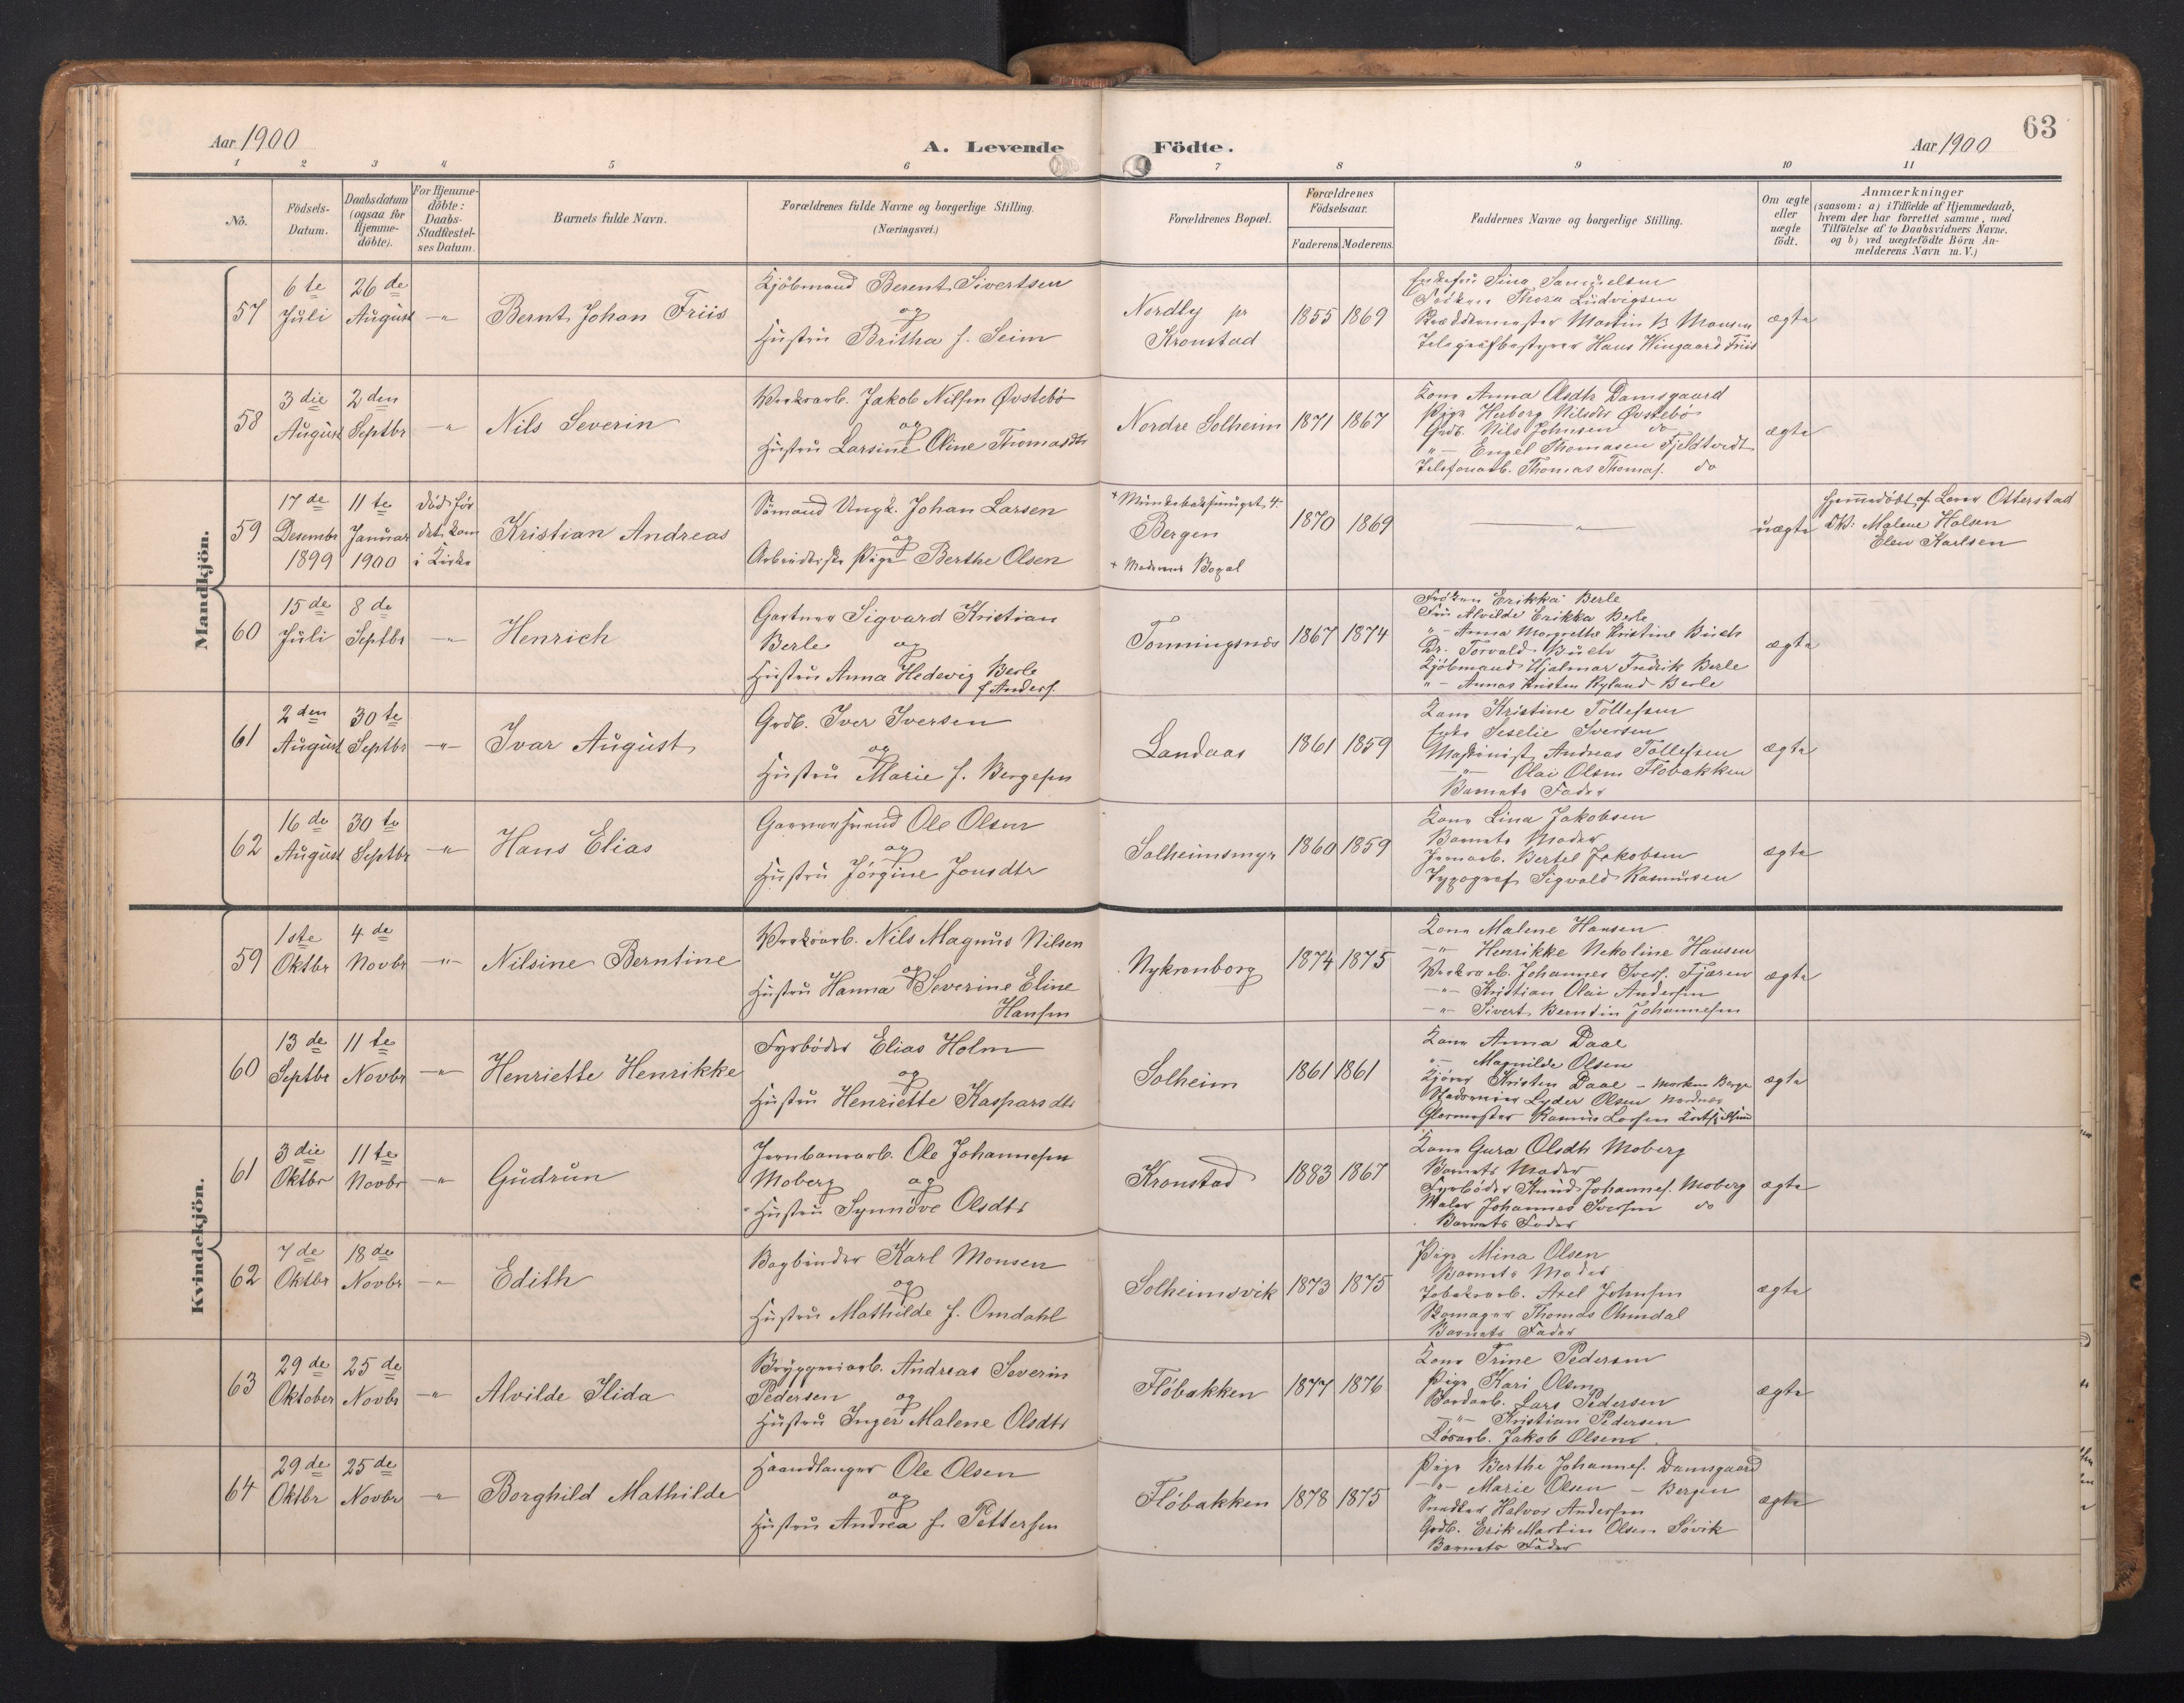 63
Aar 1900
A. Levende
Födte.
Aar 1900
1 2 3 4 5 6 7 8 9 10 11
No.
Födsels-
Datum.
Daabsdatum
(ogsaa for
Hjemme-
döbte).
For Hjemme-
döbte:
Daabs-
Stadfæstel-
ses Datum.
Barnets fulde Navn.
Forældrenes fulde Navne og borgerlige Stilling.
(Næringsvei.)
Forældrenes Bopæl.
Forældrenes
Födselsaar.
Faderens Moderens
Faddernes Navne og borgerlige Stilling.
Om ægte
eller
uægte
födt.
Anmærkninger
(saasom: a) i Tilfælde af Hjemmedaab,
hvem der har forrettet samme, med
Tilföielse af to Daabsvidners Navne.
og b) ved uægtefödte Börn An-
melderens Navn m. V.)
Mandkjön.
57
6te
Juli
26de
August
-"-
Bernt Johan Friis
Kjöbmand Berent Sivertsen
og
Hustru Britha f. Seim
Nordly pr
Kronstad
1855 1869
Enkefru Sina Samuelsen
Fröken Thora Ludvigsen
Martin B Monsen
Telegrafbestyrer Hans Wingaard Friis
ægte
58
3die
August
2den
Septbr
-"-
Nils Severin
Værksarb. Jakob Nilsen Øvstebö
og
Hustru Larsine Oline Thomasdtr
Nordre Solheim
1871 1867
Kone Anna Olsdtr Damsgaard
Pige Herborg Nilsdtr Øvstebö
Grdb. Nils Johnsen do
-"- Engel Thomasen Fjeldtvedt
Telefonarb. Thomas Thomas. do
ægte
59
17de
Desembr
1899
11te
Januar
1900
död för
det kom
i Kirke
Kristian Andreas
Sömand Ungk. Johan Larsen
og
Arbeiderske Pige Berthe Olsen
+ Munkebæksmuget 4
Bergen
+ Moderens Bopæl
1870 1869
-"-
uægte
Hjemmedöbt af Lærer Otterstad
DV: Malene Holsen
Elen Karlsen
60
15de
Juli
8de
Septbr
-"-
Henrich
Gartner Sigvard Kristian
Berle og
Hustru Anna Hedevig Berle
f. Anders.
Tonningsnes
1867 1874
Fröken Erikka Berle
Fru Alvilde Erikka Berle
"- Anna Margrethe Kristine Buch
Dr. Torvald Buch
Kjöbmand Hjalmar Fredrik Berle
"- Annas Kristen Ryland Berle
ægte
61
2den
August
30te
Septbr
-"-
Ivar August
Grdb. Iver Iversen
og
Hustru Marie f. Bergesen
Landaas
1861 1859
Kone Kristine Tollefsen
Enke Seselie Iversen
Maskinist Andreas Tollefsen
-"- Olai Olsen Flöbakken
Barnets Fader
ægte
62
16de
August
30te
Septbr
-"-
Hans Elias
Garversvend Ole Olsen
og
Hustru Jörgine Jonsdtr
Solheimsmyr
1860 1859
Kone Lina Jakobsen
Barnets Moder
Jernarb. Bertel Jakobsen
Typograf Sigvald Rasmussen
ægte
Kvindekjön.
59
1ste
Oktbr
4de
Novbr
-"-
Nilsine Berntine
Værksarb. Nils Magnus Nilsen
og
Hustru Hanna Severine Eline
Hansen
Nykronborg
1874 1875
Kone Malene Hansen
-"- Henrikke Nekoline Hansen
Værksarb. Johannes Ivers. Fjæren
-"- Kristian Olai Andersen
-"- Sivert Berntin Johannesen
ægte
60
13de
Septbr
11te
Novbr
-"-
Henriette Henrikke
Fyrböder Elias Holm
og
Hustru Henriette Kasparsdtr
Solheim
1861 1861
Kone Anna Daae
"- Magnilde Olsen
Kjörer Kristen Daae - Marken Berge
Lyder Olsen Nordnes
Glarmester Rasmus Larsen
ægte
61
3die
Oktbr
11te
Novbr
-"-
Gudrun
Jernbanearb. Ole Johannesen
Moberg og
Hustru Synnöve Olsdtr
Kronstad
1883 1867
Kone Gura Olsdtr Moberg
Barnets Moder
Fyrböder Knud Johannes. Moberg
Maler Johannes Iversen do
Barnets Fader
ægte
62
7de
Oktbr
18de
Novbr
-"-
Edith
Bogbinder Karl Monsen
og
Hustru Mathilde f. Omdahl
Solheimsvik
1873 1875
Pige Mina Olsen
Barnets Moder
Tobaksarb. Axel Johnsen
Skomager Thomas Omdal
Barnets Fader
ægte
63
29de
Oktober
25de
Novbr
-"-
Alvilde Ilida
Bryggeriarb. Andreas Severin
Pedersen og
Hustru Inger Malene Olsdtr
Flöbakken
1877 1876
Kone Trine Pedersen
Pige Kari Olsen
Lars Pedersen
-"- Kristian Pedersen
Lösarb. Jakob Olsen
ægte
64
29de
Oktbr
25de
Novbr
-"-
Borghild Mathilde
Haandlanger Ole Olsen
og
Hustru Andrea f. Pettersen
Flöbakken
1878 1875
Pige Berthe Johannes. Damsgaard
-"- Marie Olsen - Bergen
Snedker Halvor Andersen
Grdb. Erik Martin Olsen Sövik
Barnets Fader
ægte